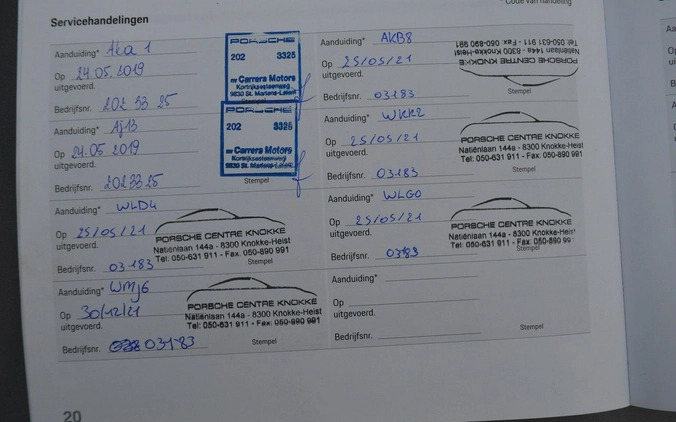 * Code van handeling
Servicehandelingen
Aanduiding* AKa 1
Op 24.05.2019
uitgevoerd.
Bedrijfsnr. 202 33 25
PORSCHE
202 3325
nv Carrera Motors
Kortrijksesteenweg
9830 St. Martens-Latem
Aanduiding* Aj13
Op 24.05.2019
uitgevoerd.
Bedrijfsnr. 2023325
PORSCHE
202 3325
nv Carrera Motors
Kortrijksesteenweg
9830 St. Martens-Latem
Stempel
Aanduiding* WLD4
Op 25/05/21
uitgevoerd.
Bedrijfsnr. 03183
PORSCHE CENTRE KNOKKE
Natiënlaan 144a - 8300 Knokke-Heist
Tel: 050-631 911 - Fax: 050-890 991
Stempel
Aanduiding* WMJ6
Op 30/12/21
uitgevoerd.
Bedrijfsnr. 03183
PORSCHE CENTRE KNOKKE
Natiënlaan 144a - 8300 Knokke-Heist
Tel: 050-631 911 - Fax: 050-890 991
Stempel
Aanduiding* AKB8
Op 25/05/21
uitgevoerd.
Bedrijfsnr. 03183
PORSCHE CENTRE KNOKKE
Natiënlaan 144a - 8300 Knokke-Heist
Tel: 050-631 911 - Fax: 050-890 991
Stempel
Aanduiding* WKK2
Op 25/05/21
uitgevoerd.
Bedrijfsnr. 03183
PORSCHE CENTRE KNOKKE
Natiënlaan 144a - 8300 Knokke-Heist
Tel: 050-631 911 - Fax: 050-890 991
Stempel
Aanduiding* WLG0
Op 25/05/21
uitgevoerd.
Bedrijfsnr. 03183
PORSCHE CENTRE KNOKKE
Natiënlaan 144a - 8300 Knokke-Heist
Tel: 050-631 911 - Fax: 050-890 99
Stempel
Aanduiding*
Op
uitgevoerd.
Bedrijfsnr.
Stempel
20